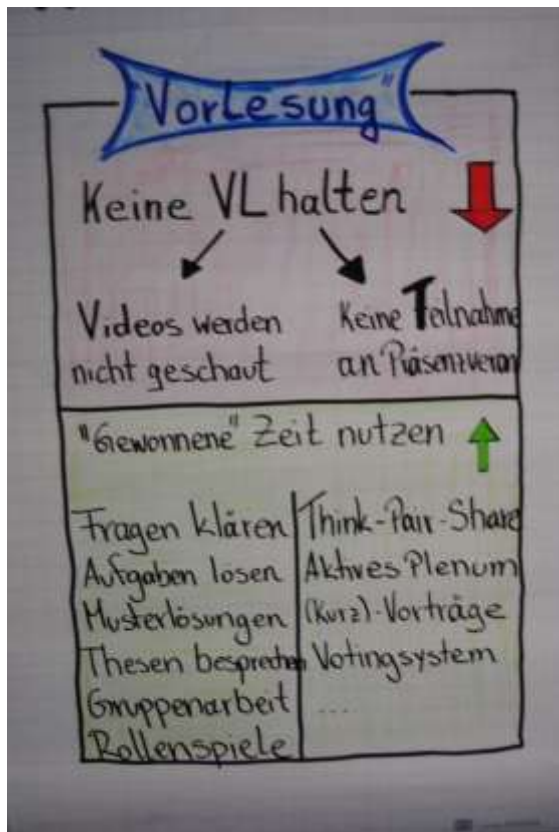 "Vorlesung"
Keine VL halten
Videos werden
nicht geschaut
Keine Teilnahme
an Präsenzveran
"Gewonnene" Zeit nutzen
Fragen klären
Aufgaben losen
Musterlösungen
Thesen besprechen
Gruppenarbeit
Rollenspiele
Think-Pair-Share
Aktives Plenum
(Kurz)-Vorträge
Votingsystem
....